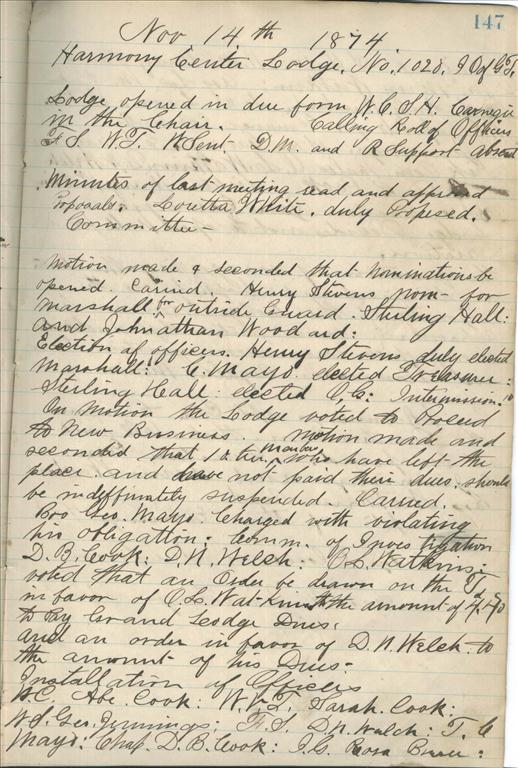 147
Nov 14th 1874
Harmony Center Lodge. No. 1028. I O of G T.
Lodge opened in due form W.C. S.H. Carnegie
in the Chair. Calling Roll of Officers
F S. W.T. R Sent D.M. and R Support absent
Minutes of last meeting read and approved
Proposals. Loretta White. duly Proposed.
Committee -
Motion made & seconded that Nominations be
opened Carried. Henry Stevens nom- for
Marshall: for outside Guard. Sterling Hall:
and Johnathan Wood ard:
Election of officers. Henry Stevens duly elected
Marshall: C. Mayo. elected Treasurer:
Sterling Hall: elected O.G: Intermission: 10
On Motion the Lodge voted to Proceed
to New Business. Motion made and
seconded that Members who have left the
place and have not paid their dues. should
be indiffinately suspended. Carried.
Bro Geo. Mayo. Charged with violating
his obligation: Comm. of Inves tigation
D. B. Cook: D. N. Welch: O L. Watkins:
voted that an Order be drawn on the T.
in favor of O. L. Wat-kins to the amount of 4.40
to Pay Grand Lodge Dues:
and an order in favor of D. N. Welch. to
the amount of his Dues-
Installation of Officers
W.C. Abe. Cook: W.V.T. Sarah. Cook:
W.S. Geo. Jennings: F. S. D N. Welch: T. C
Mayo: Chap. D. B. Cook: I.G. Rosa